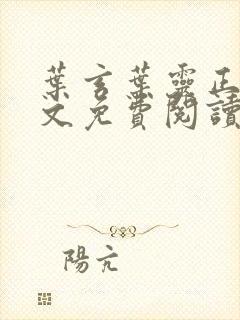 葉言葉靈正
文免費閱讀
陽亢